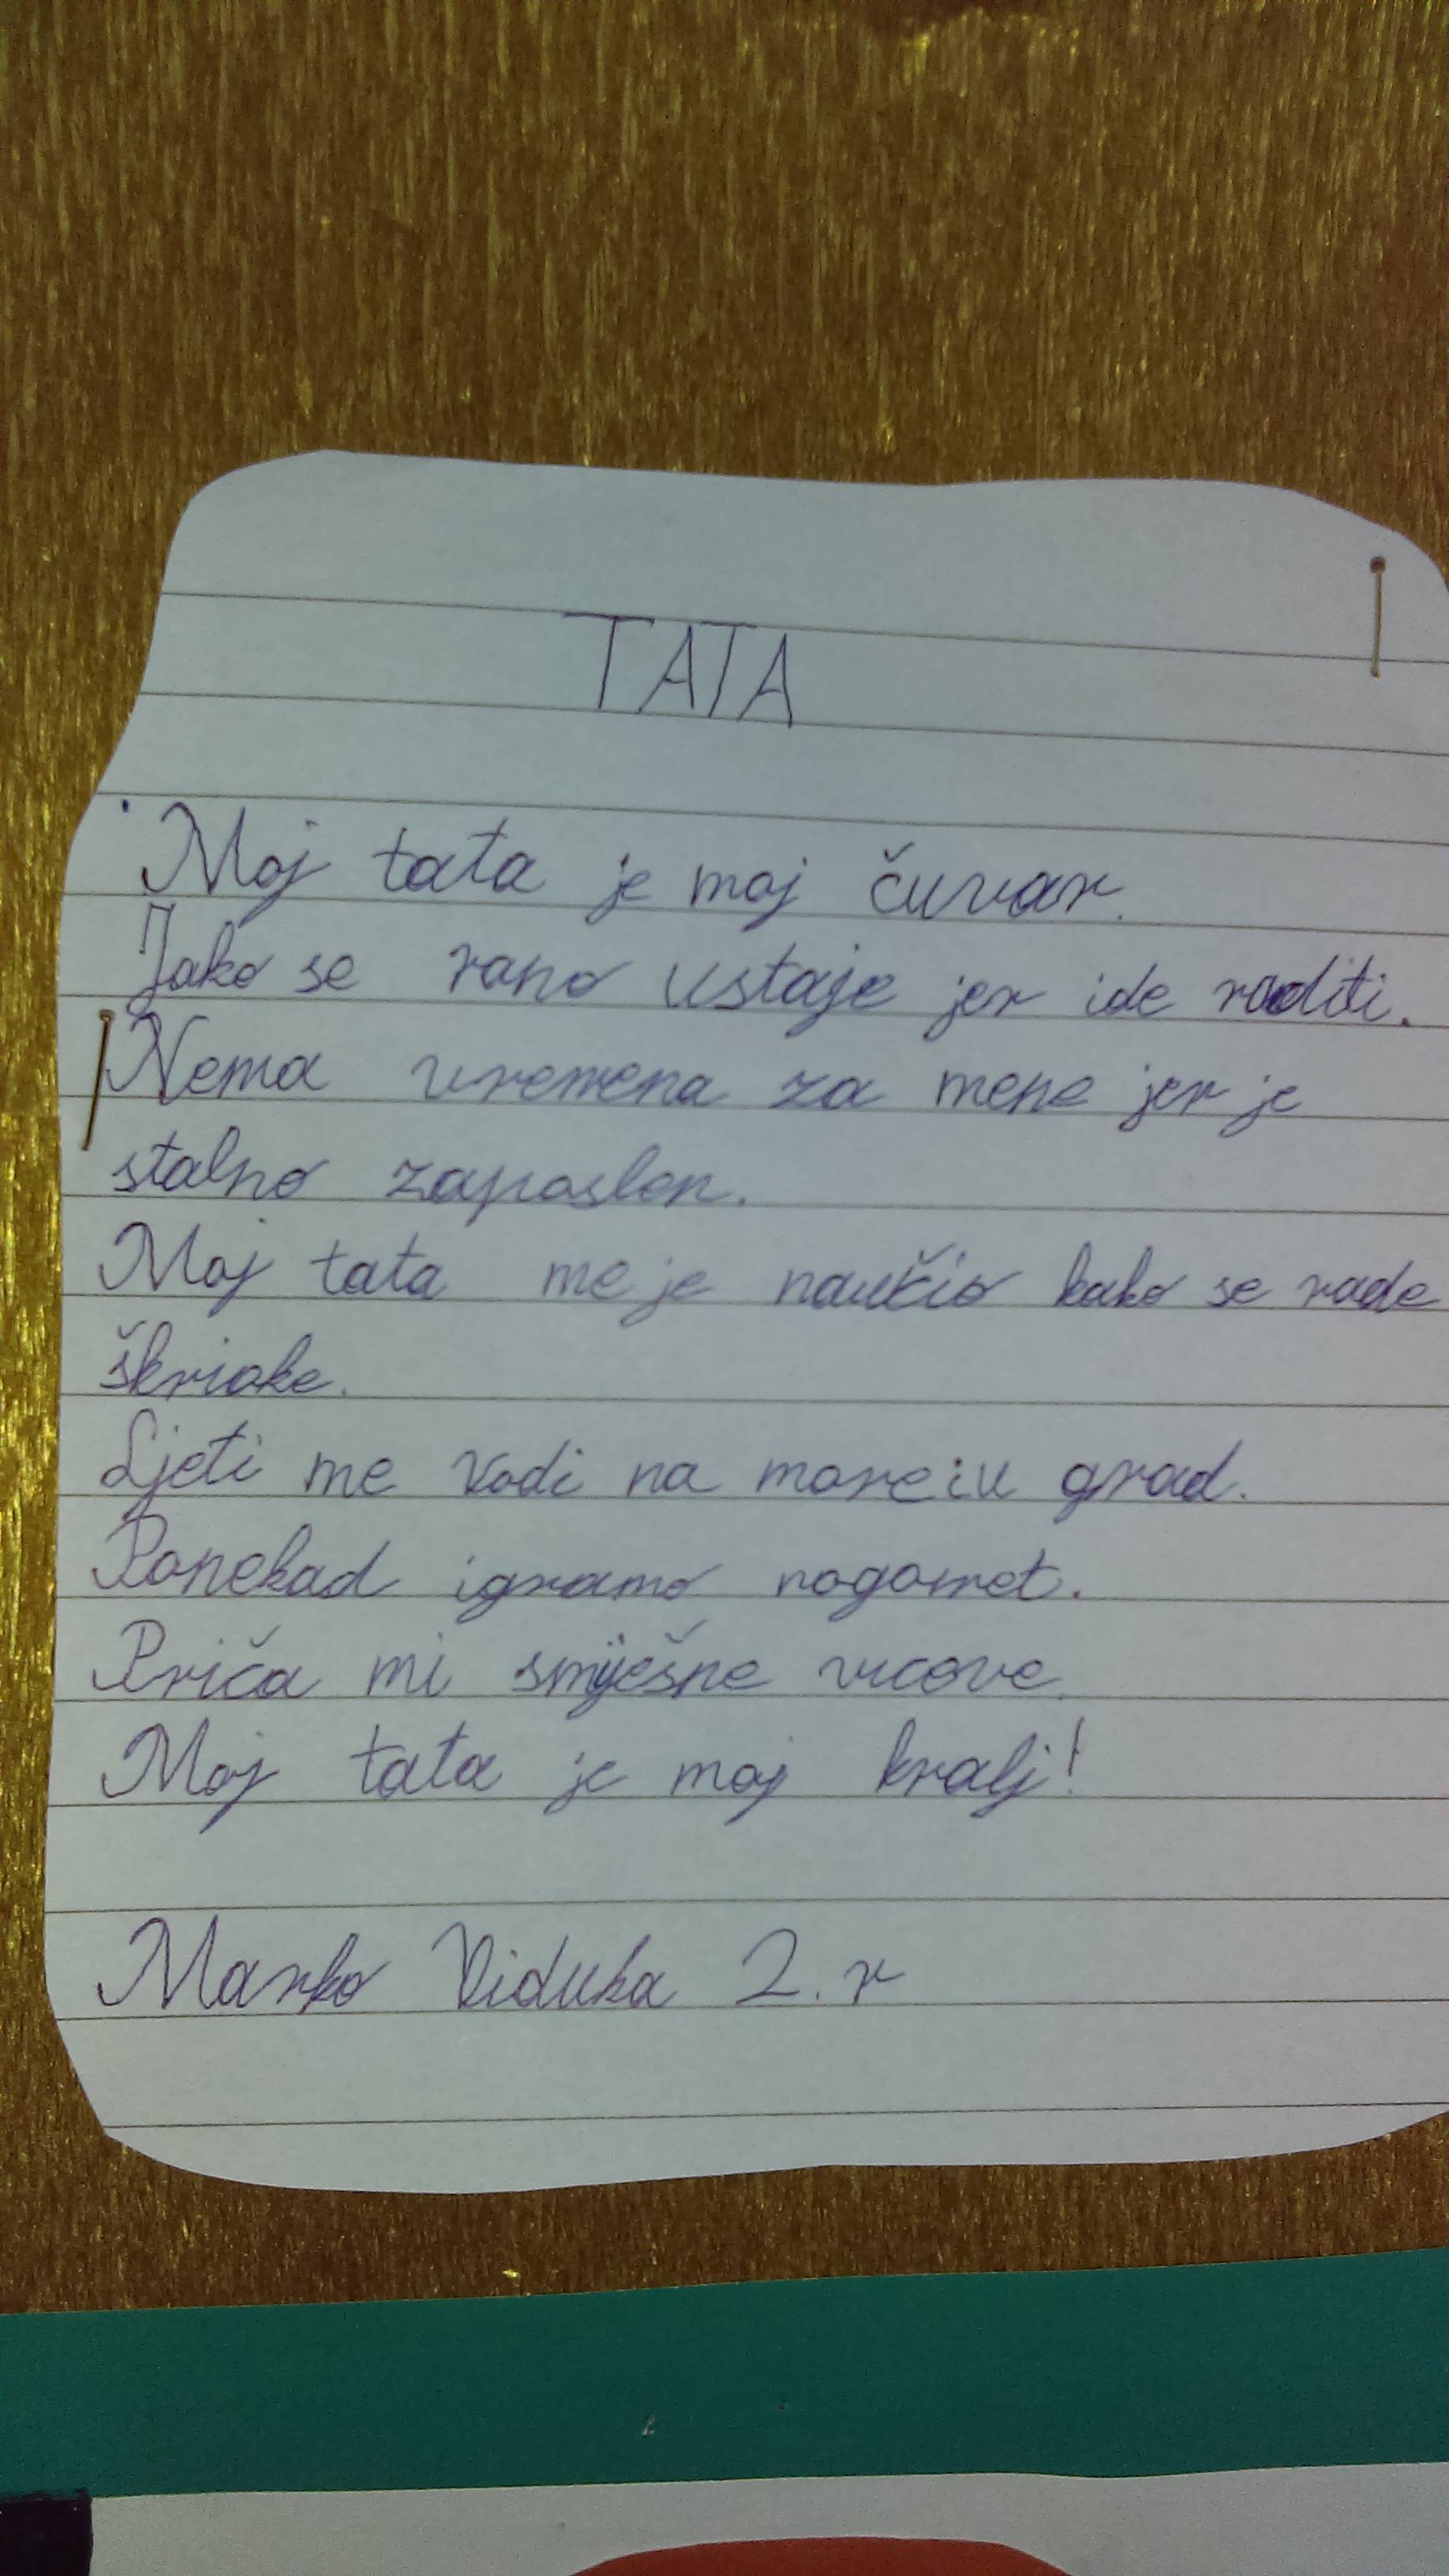 TATA
Moj tata je moj čuvar.
Jako se rano ustaje jer ide raditi.
Nema vremena za mene jer je
stalno zaposlen.
Moj tata me je naučio kako se rade
škrioke.
Ljeti me vodi na more i u grad.
Ponekad igramo nogomet.
Priča mi smiješne vicove.
Moj tata je moj kralj!
Marko Viduka 2. r